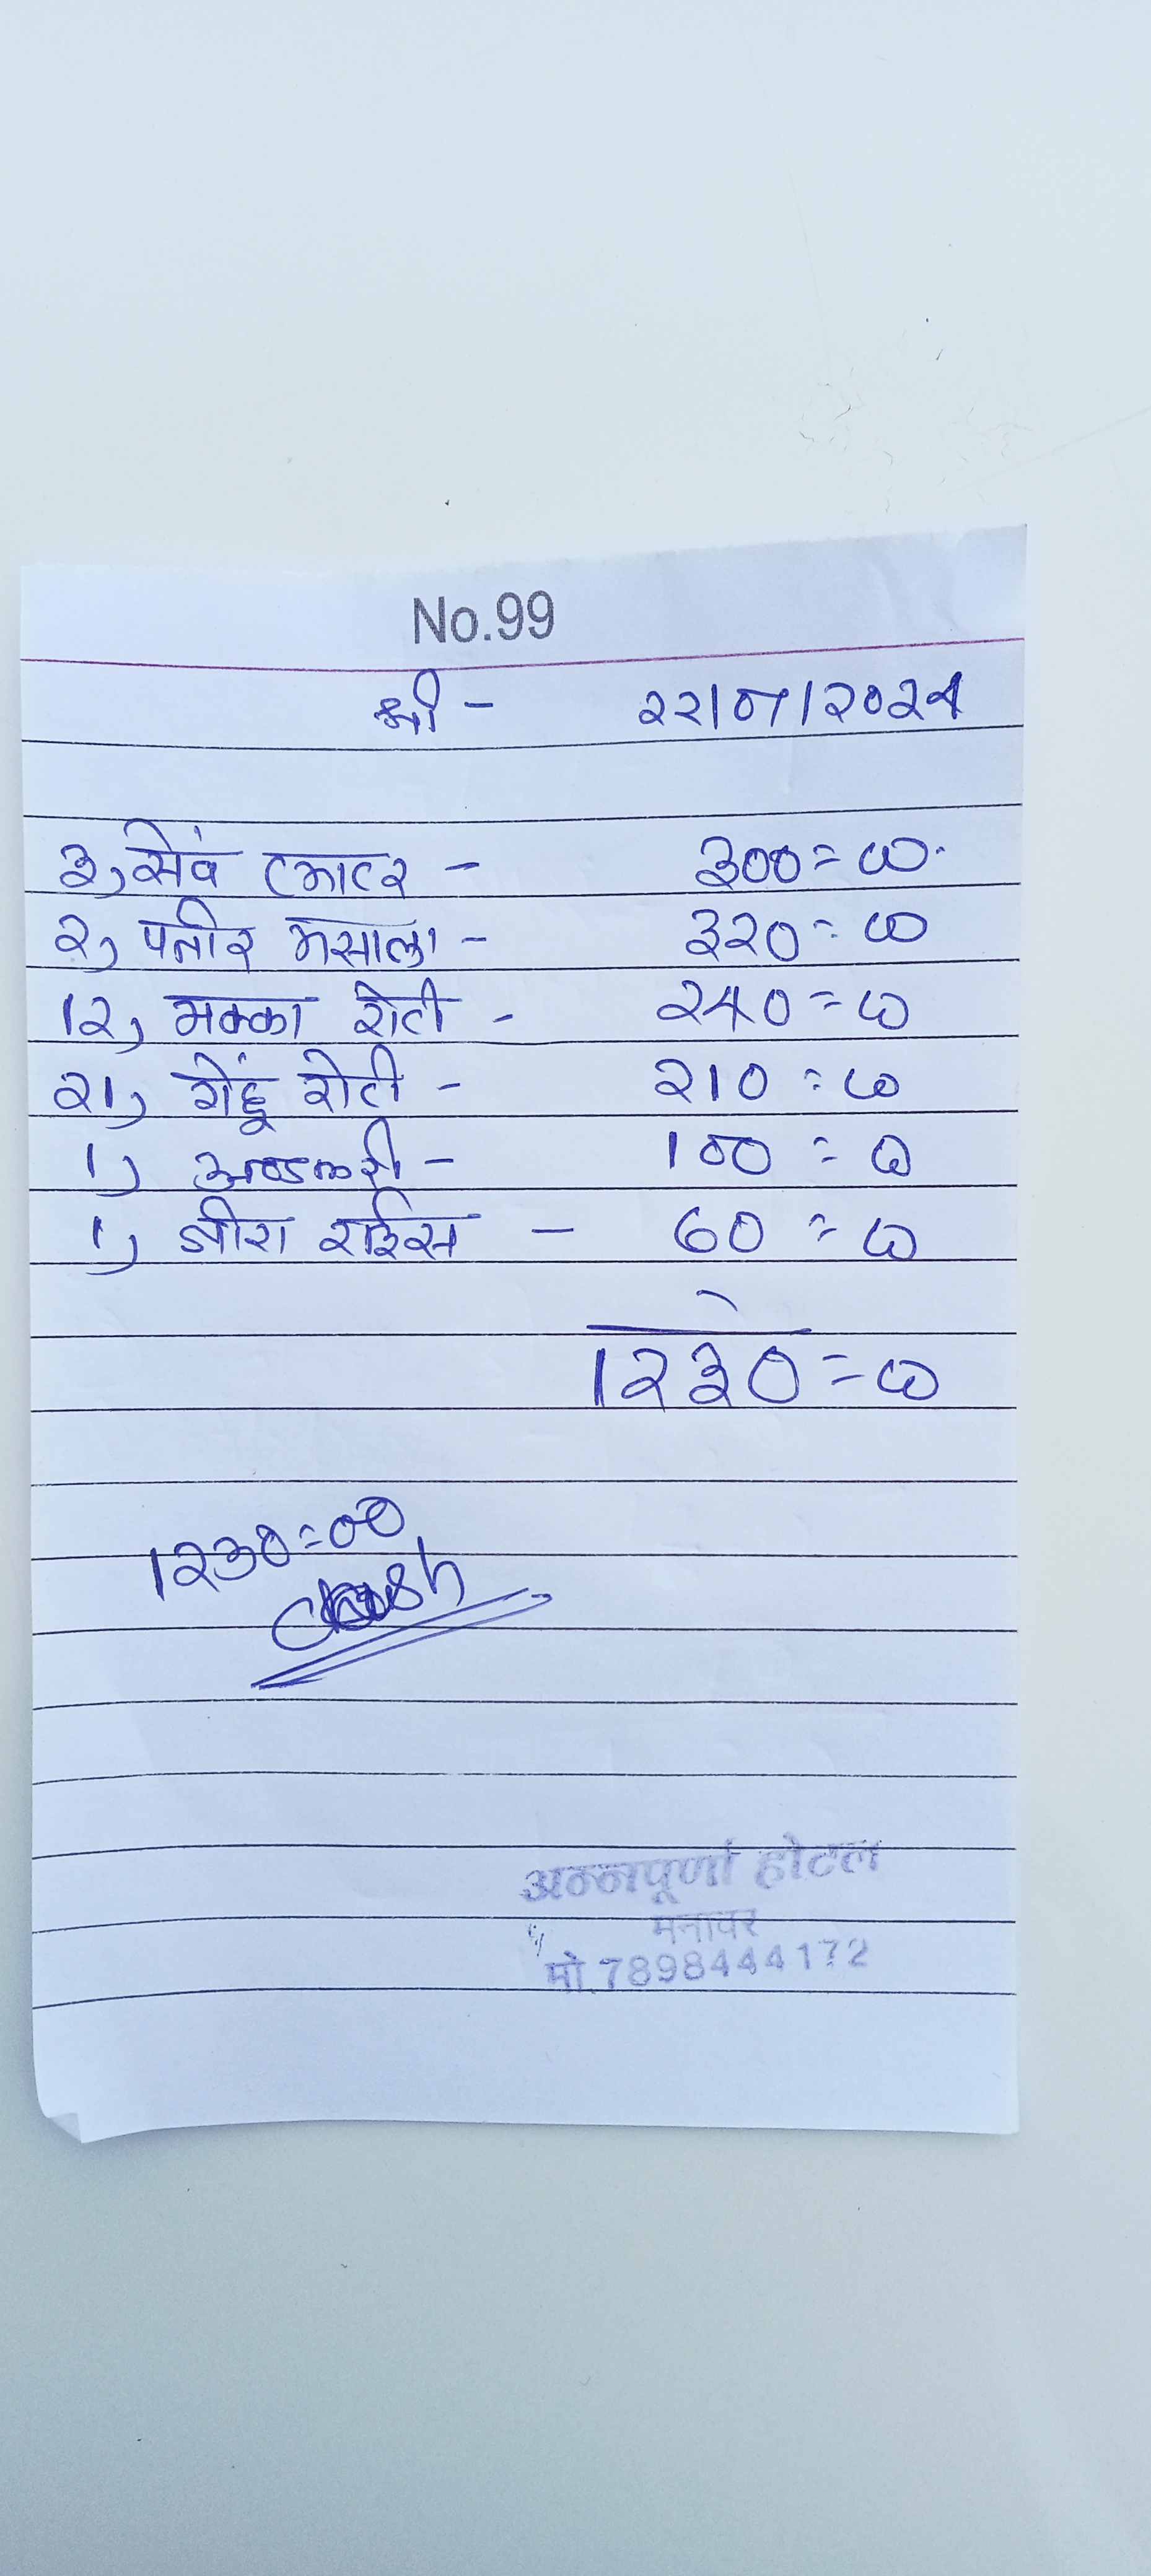 No.99
श्री - 22/07/2024
3, सेवं टमाटर - 300=00
2, पनीर मसाला - 320=00
12, मक्का रोटी - 240=00
21, गेहूं रोटी - 210=00
1, अण्डाकरी - 100=00
1, जीरा राईस - 60=00
1230=00
1230=00
Cash
अन्नपूर्णा होटल
मनावर
मो.7898444172